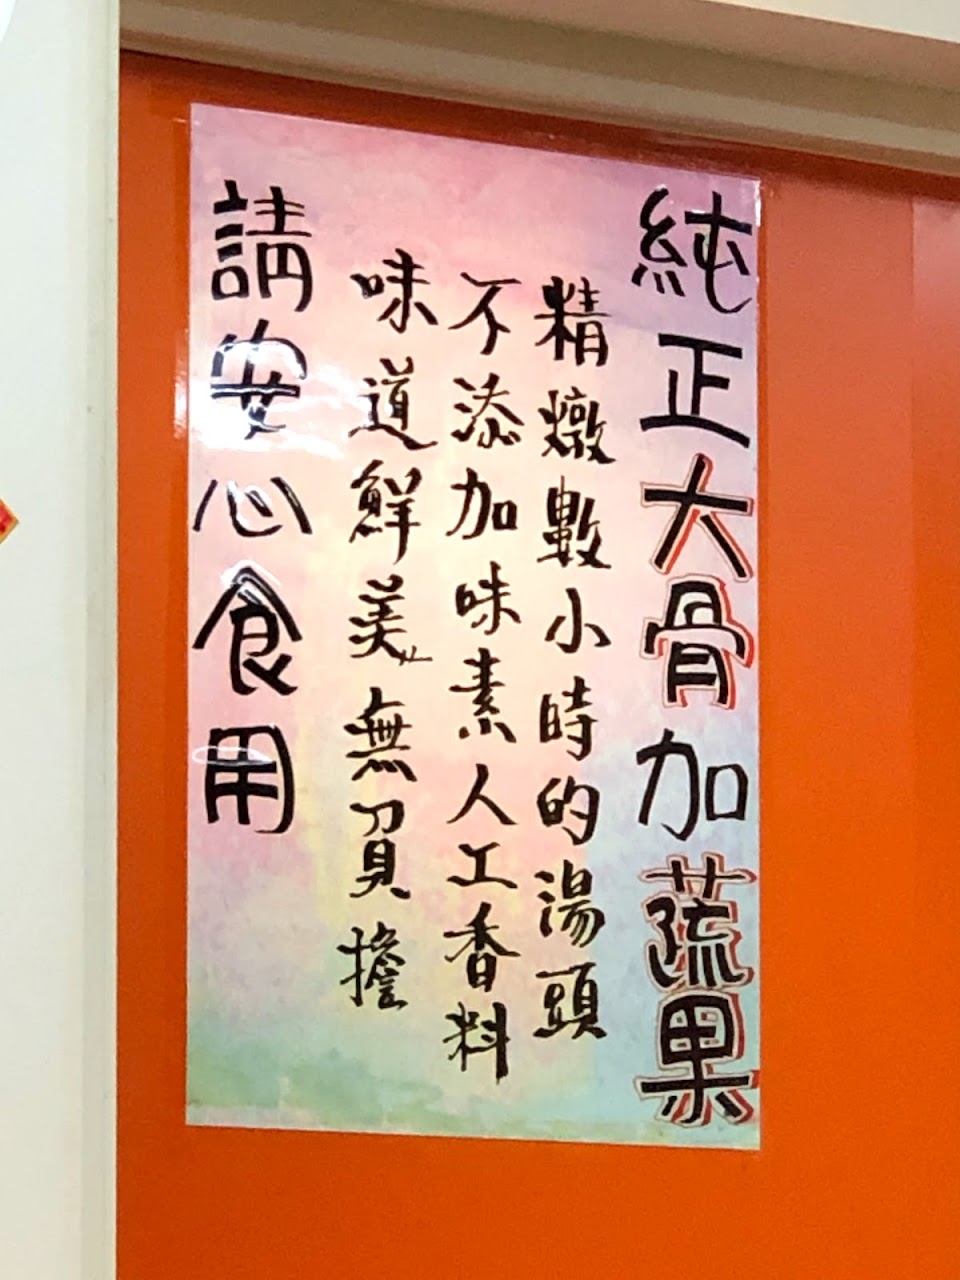 純正大骨加蔬果
精燉數小時的湯頭
不添加味素人工香料
味道鮮美無負擔
請安心食用